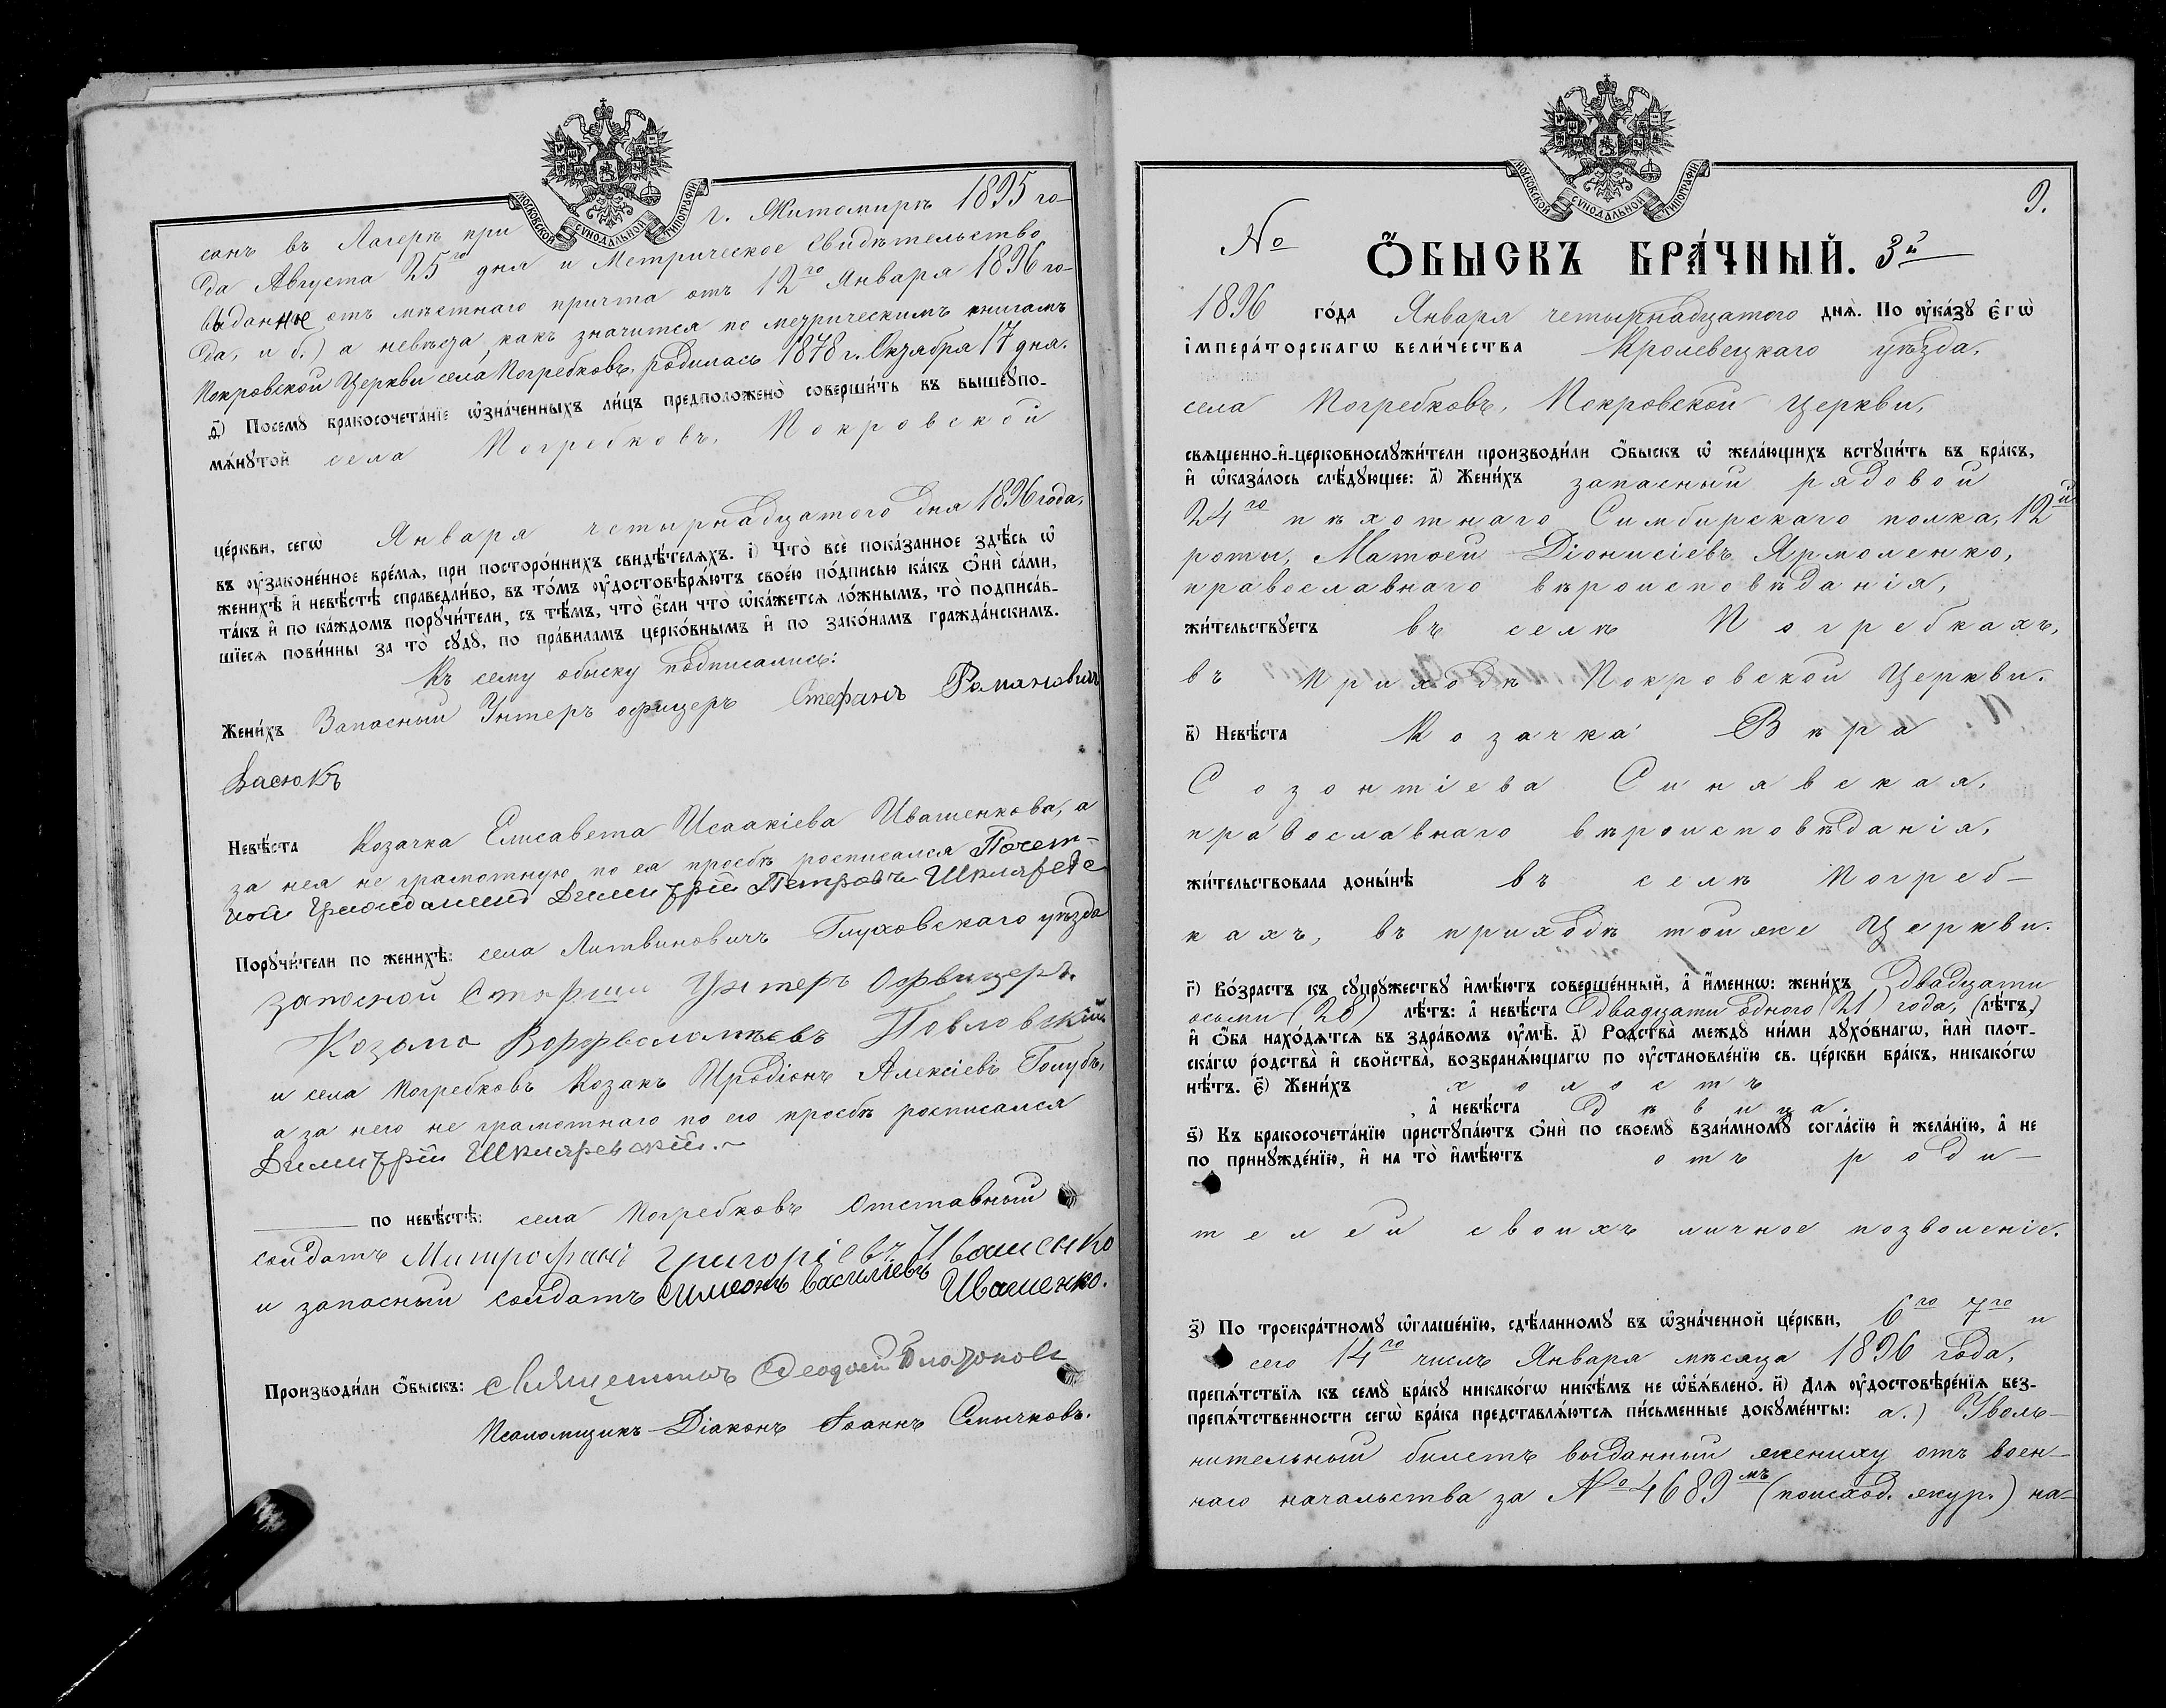 МОСКОВСКОЙ СУНОДАЛЬНОЙ ТИПОГРАФІИ
санъ въ Лагерѣ при г. Житомирѣ 1895 го-
да Августа 25го дня и Метрическое Свидѣтельство
выданное отъ мѣстнаго причта отъ 12го Января 1896 го-
да, и б.) а невѣста, какъ значится по метрическимъ книгамъ
Покровской Церкви села Погребковъ, родилась 1878 г. Октября 17 дня.
д҃) Посемꙋ бракосочета́нїе ѡ҆зна́ченныхъ ли́цъ предположено̀ соверши́ть въ вышеꙋпо-
мѧ́нꙋтой села Погребковъ, Покровской
це́ркви, сегѡ̀ Января четырнадцатого дня 1896 года,
въ ᲂу҆законе́нное вре́мѧ, при посторо́ннихъ свидѣ́телѧхъ. і҃) Что̀ всѐ пока́занное здѣ́сь ѡ҆
женихѣ̀ и҆ невѣ́стѣ справедли́во, въ то́мъ ᲂу҆достовѣрѧ́ютъ свое́ю по́дписью ка́къ ѻ҆нѝ са́ми,
та́къ и҆ по ка́ждомъ порꙋчи́тели, съ тѣ́мъ, что̀ є҆́сли что̀ ѡ҆ка́жетсѧ ло́жнымъ, то̀ подписа́в-
шїесѧ пови́нны за то̀ сꙋдꙋ̀, по пра́виламъ церко́внымъ и҆ по зако́намъ гражда́нскимъ.
Къ сему обыску подписались:
Жени́хъ Запасный Унтеръ офицеръ Стефанъ Романовъ
Васюкъ
Невѣ́ста Козачка Елисавета Исаакіева Ивашенкова, а
за нея не грамотную по ея просьбѣ росписался Почет-
ной Гражданинъ Димитрій Петровъ Шкляревс
Порꙋчи́тели по женихѣ̀: села Литвиновичъ Глуховскаго уѣзда
запосной Старши Унтеръ Офвицеръ.
Козьма Ворфоломѣевъ Повловский
и села Погребковъ Козакъ Иродіонъ Алексіевъ Голубъ,
а за него не грамотнаго по его просьбѣ росписался
Димитрій Шкляревскій.
по невѣ́стѣ: села Погребковъ Отставный
солдатъ Митрофанъ Григоріевъ Ивашенко
и запасный солдатъ Симеонъ Василіевъ Ивашенко.
Производи́ли ѻ҆́быскъ: Священникъ
Псаломщикъ-Діаконъ Іоаннъ Смычковъ.
МОСКОВСКОЙ СУНОДАЛЬНОЙ ТИПОГРАФІИ
9.
№ Ѻ҆́БЫСКЪ БРА́ЧНЫЙ. 3й
1896 го́да Января четырнадцатого днѧ̀. По ᲂу҆ка́зꙋ є҆гѡ̀
і҆мпера́торскагѡ вели́чества Кролевецкаго уѣзда,
села Погребковъ, Покровской Церкви,
свѧщенно-и҆-церковнослꙋжи́тели производи́ли ѻ҆́быскъ ѡ҆ жела́ющихъ встꙋпи́ть въ бра́къ,
и҆ ѡ҆каза́лось слѣ́дꙋющее: а҃) Жени́хъ запасный рядовой
24го пѣхотнаго Симбирскаго полка, 12й
роты, Матѳей Діонисіевъ Ярмоленко,
православнаго вѣроисповѣданія,
жи́тельствꙋетъ въ селѣ Погребкахъ,
въ приходѣ Покровской Церкви.
в҃) Невѣ́ста Козачка Вѣра
Созонтіева Синявская,
православнаго вѣроисповѣданія,
жи́тельствовала доны́нѣ въ селѣ Погреб-
кахъ, въ приходѣ той же Церкви.
г҃) Во́зрастъ къ сꙋпрꙋ́жествꙋ и҆мѣ́ютъ соверше́нный, а҆ и҆́меннѡ: жени́хъ двадцати
осьми (28) лѣ́тъ: а҆ невѣ́ста двадцати одного (21) года, (лѣ́тъ,)
и҆ ѻ҆́ба нахо́дѧтсѧ въ здра́вомъ ᲂу҆мѣ̀. д҃) Родства̀ междꙋ ни́ми дꙋхо́внагѡ, и҆лѝ плот-
ска́гѡ родства̀ и҆ свойства̀, возбранѧ́ющагѡ по ᲂу҆становле́нїю св. це́ркви бра́къ, никако́гѡ
нѣ́тъ. є҃) Жени́хъ холостъ
, а҆ невѣ́ста дѣвица.
ѕ҃) Къ бракосочета́нїю пристꙋпа́ютъ ѻ҆нѝ по своемꙋ̀ взаи́мномꙋ согла́сїю и҆ жела́нїю, а҆ не
по принꙋжде́нїю, и҆ на то̀ и҆мѣ́ютъ отъ роди-
телей своихъ личное позволеніе.
з҃) По троекра́тномꙋ ѡ҆глаше́нїю, сдѣ́ланномꙋ въ ѡ҆зна́ченной це́ркви, 6го 7го и
сего 14го числъ Января мѣсяца 1896 года,
препѧ́тствїѧ къ семꙋ̀ бра́кꙋ никако́гѡ никѣ́мъ не ѡ҆б̾ѧ́влено. и҃) Длѧ ᲂу҆достовѣре́нїѧ без-
препѧ́тственности сегѡ̀ бра́ка представлѧ́ютсѧ пи́сьменные докꙋме́нты: а.) Уволь-
нительный билетъ выданный жениху отъ воен-
наго начальства за № 4689мъ (поисход. жур.) на-